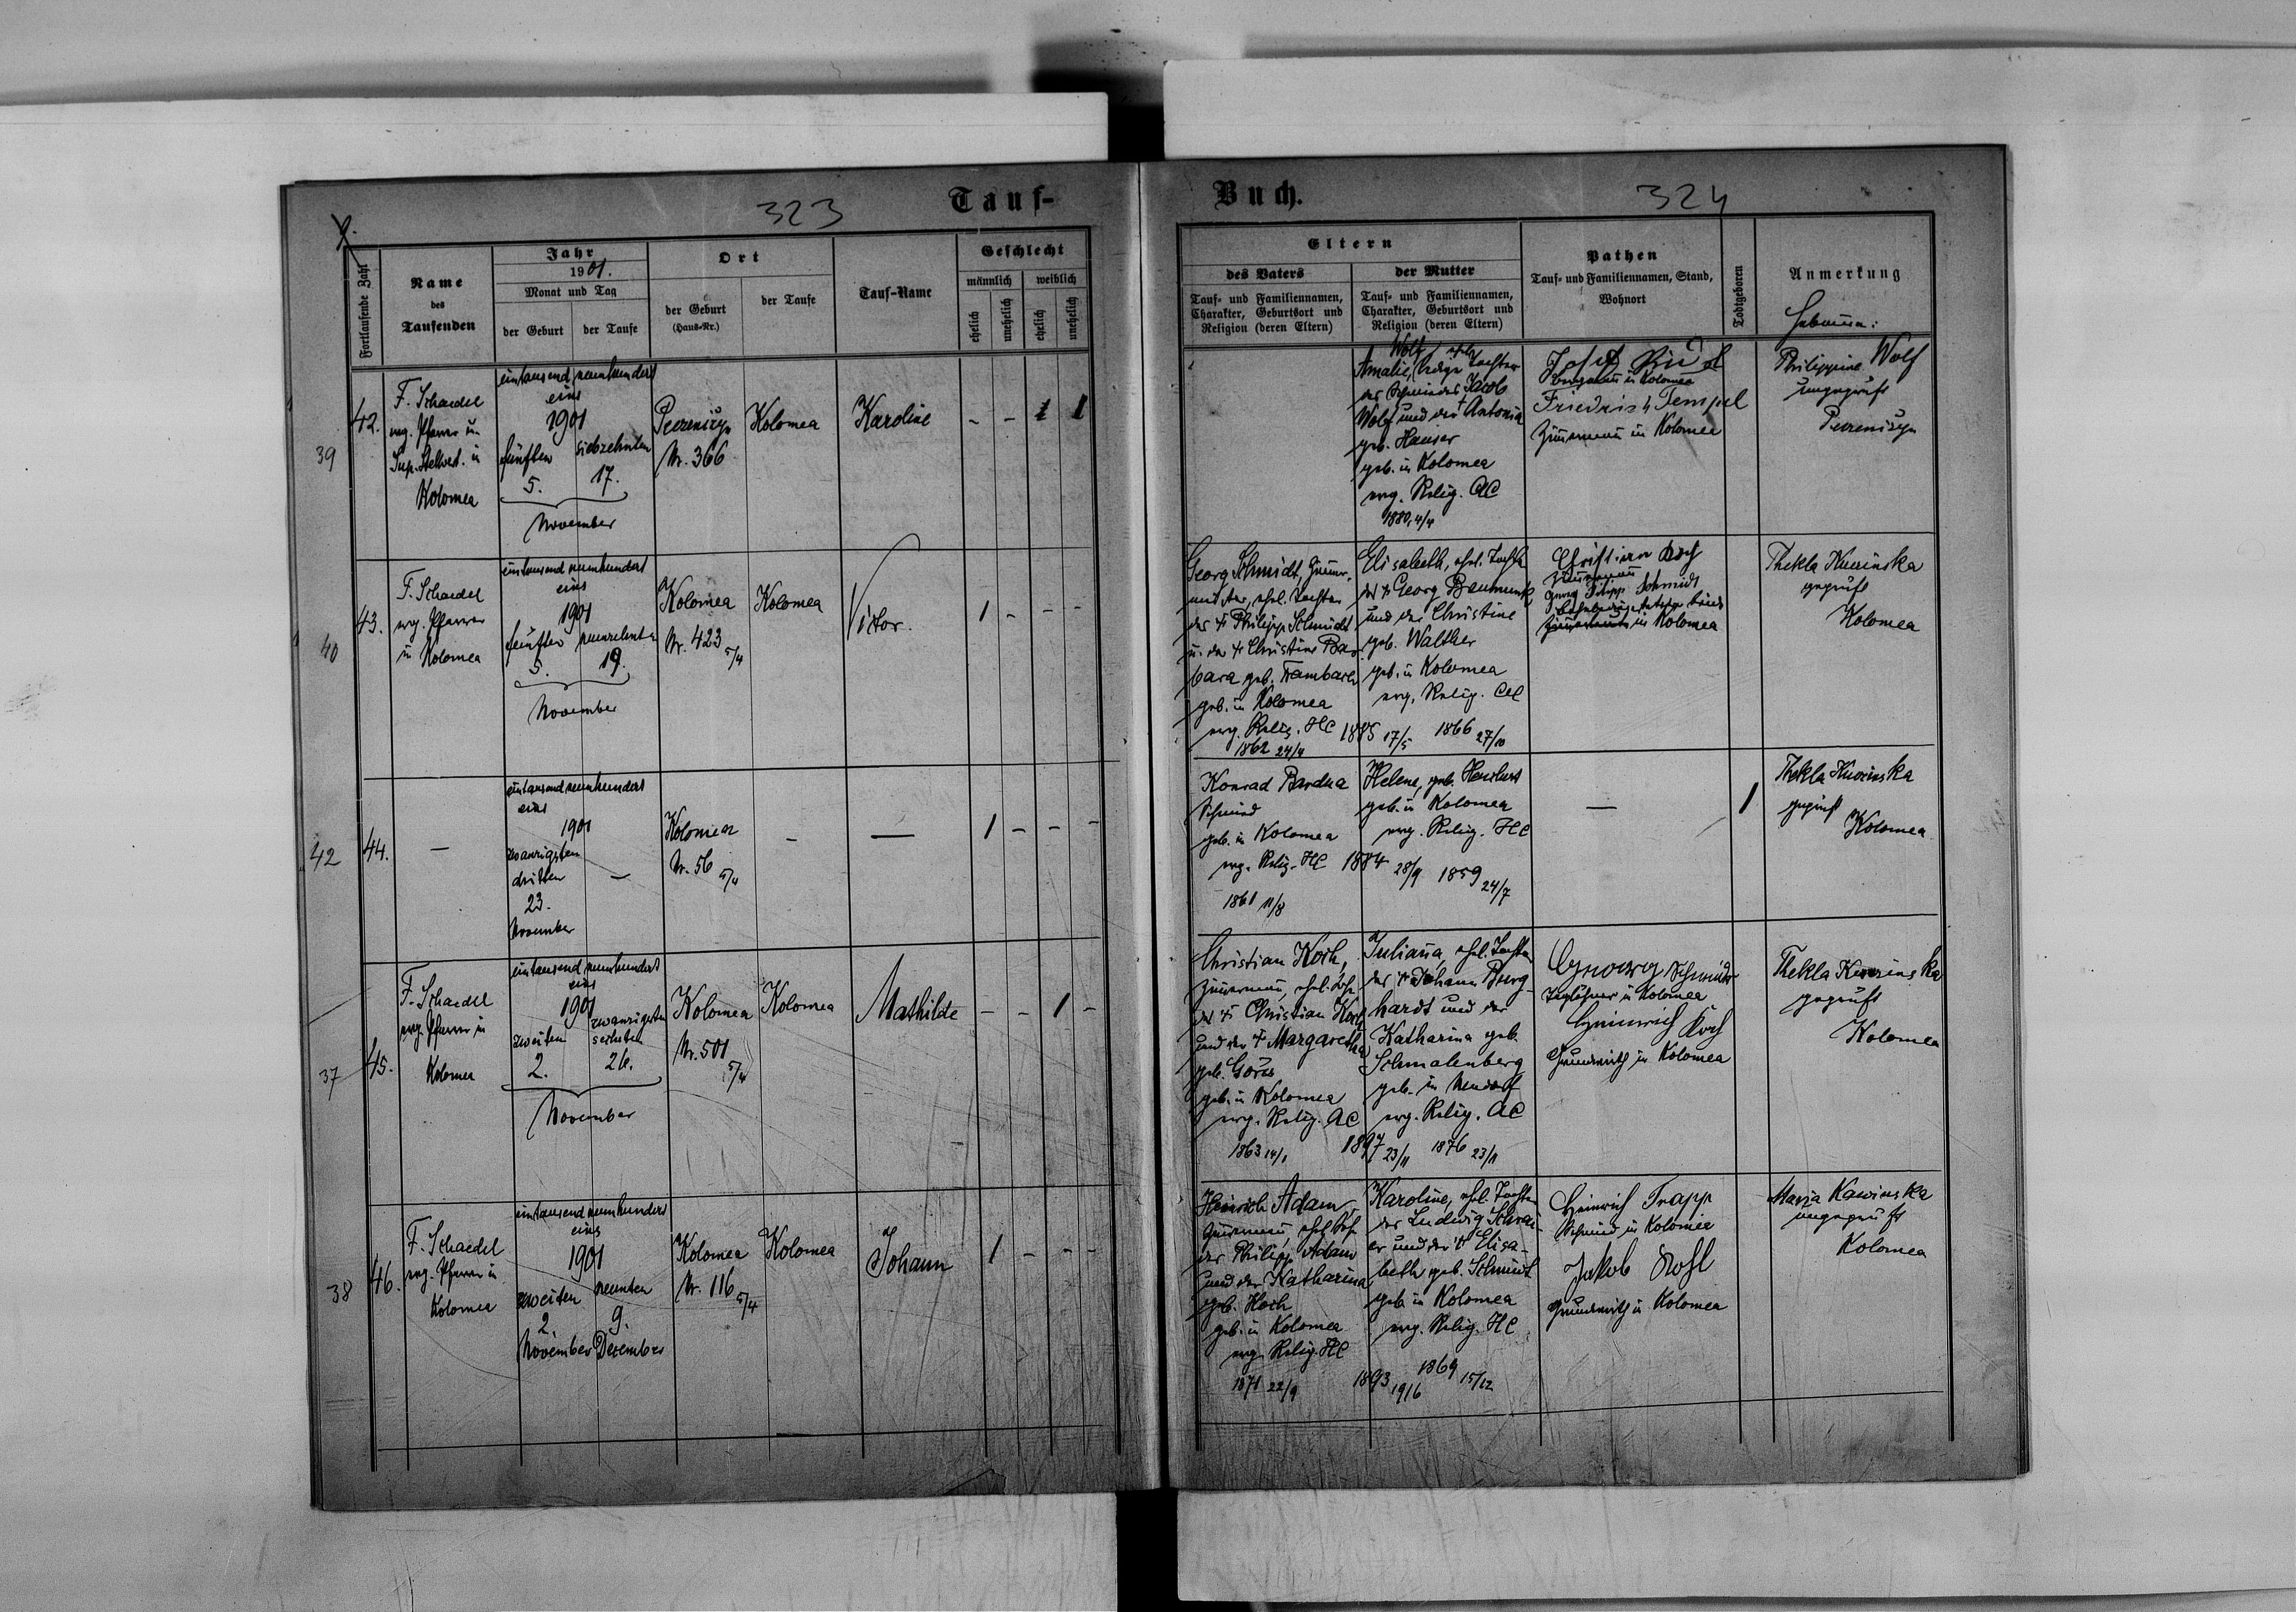 323
Tauf-
Buch.
324
Fortlaufende Zahl
Name
des
Taufenden
Jahr
1901.
Monat und Tag
der Geburt
der Taufe
Ort
der Geburt
(Haus-Nr.)
der Taufe
Tauf-Name
Geschlecht
männlich
weiblich
ehelich
unehelich
ehelich
unehelich
Eltern
des Vaters
Tauf- und Familiennamen,
Charakter, Geburtsort und
Religion (deren Eltern)
der Mutter
Tauf- und Familiennamen,
Charakter, Geburtsort und
Religion (deren Eltern)
Pathen
Tauf- und Familiennamen, Stand,
Wohnort
Todtgeboren
Anmerkung
Hebamme:
39
42.
F. Schaedel
evg. Pfarrer u.
Sup. Stellvert. in
Kolomea
eintausend neunhundert
eins
1901
fünften
5.
siebzehnten
17.
November
Peczeniżyn
Nr. 366
Kolomea
Karoline
- - 1 1
Wolf
Amalie, ledige Tochter
des Schmiedes Jacob
Wolf und der Antonia
geb. Hauser
geb. in Kolomea
evg. Relig. AC
1880, 4/4
Josef
in Kolomea
Friedrich Tempel
Zimmermann in Kolomea
Philippine Wolf
ungeprüft
Peczeniżyn
40
43.
F. Schaedel
evg. Pfarrer
in Kolomea
eintausend neunhundert
eins
1901
fünften
5.
neunzehnten
19.
November
Kolomea
Nr. 423 5/4
Kolomea
Victor.
1 - - -
Georg Schmidt, Zimmer-
des † Philipp Schmidt
u. der † Christine Bar-
bara geb. Trambach
geb. in Kolomea
evg. Relig. HC
1862 24/4
1885 17/5
Elisabeth, ehel. Tochter
des † Georg
und der Christine
geb. Walther
geb. in Kolomea
evg. Relig. AC
1866 27/10
Christian Koch
Zimmermann
Georg Filipp Schmidt
in Kolomea
Thekla Kwinska
geprüft
Kolomea
42
44.
-
eintausend neunhundert
eins
1901
zwanzigsten
dritten
23.
November
-
Kolomea
Nr. 56 5/4
-
-
1 - - -
Konrad Bardua
Schmied
geb. in Kolomea
evg. Relig. HC
1861 11/8
1884 28/9
Helene, geb.
geb. in Kolomea
evg. Relig. HC
1859 24/7
-
1
Thekla Kwinska
geprüft
Kolomea
37
45.
F. Schaedel
evg. Pfarrer in
Kolomea
eintausend neunhundert
eins
1901
zweiten
2.
zwanzigsten
sechsten
26.
November
Kolomea
Nr. 501 5/4
Kolomea
Mathilde
- - 1 -
Christian Koch,
Zimmermann, ehel. Sohn
des † Christian Koch
und der † Margaretha
geb. Görz
geb. in Kolomea
evg. Relig. AC
1863 14/1
1897 23/11
Juliana, ehel. Tochter
des † Johann Burg-
hardt und der
Katharina geb.
Schmalenberg
geb. in Neudorf
evg. Relig. AC
1876 23/11
Georg Schmidt
Taglöhner in Kolomea
Heinrich Koch
Grundwirth in Kolomea
Thekla Kwinska
geprüft
Kolomea
38
46.
F. Schaedel
evg. Pfarrer in
Kolomea
eintausend neunhundert
eins
1901
zweiten
2.
November
neunten
9.
Dezember
Kolomea
Nr. 116 5/4
Kolomea
Johann
1 - - -
Heinrich Adam,
Zimmermann, ehel. Sohn
des Philipp Adam
und der Katharina
geb. Koch
geb. in Kolomea
evg. Relig. HC
1871 22/9
1893 19/6
Karoline, ehel. Tochter
des Ludwig
und der † Elisa-
beth geb. Schmidt
geb. in Kolomea
evg. Relig. HC
1869 15/12
Heinrich Trapp
Schmied in Kolomea
Jakob Kohl
Grundwirth in Kolomea
Maria Kawinska
ungeprüft
Kolomea